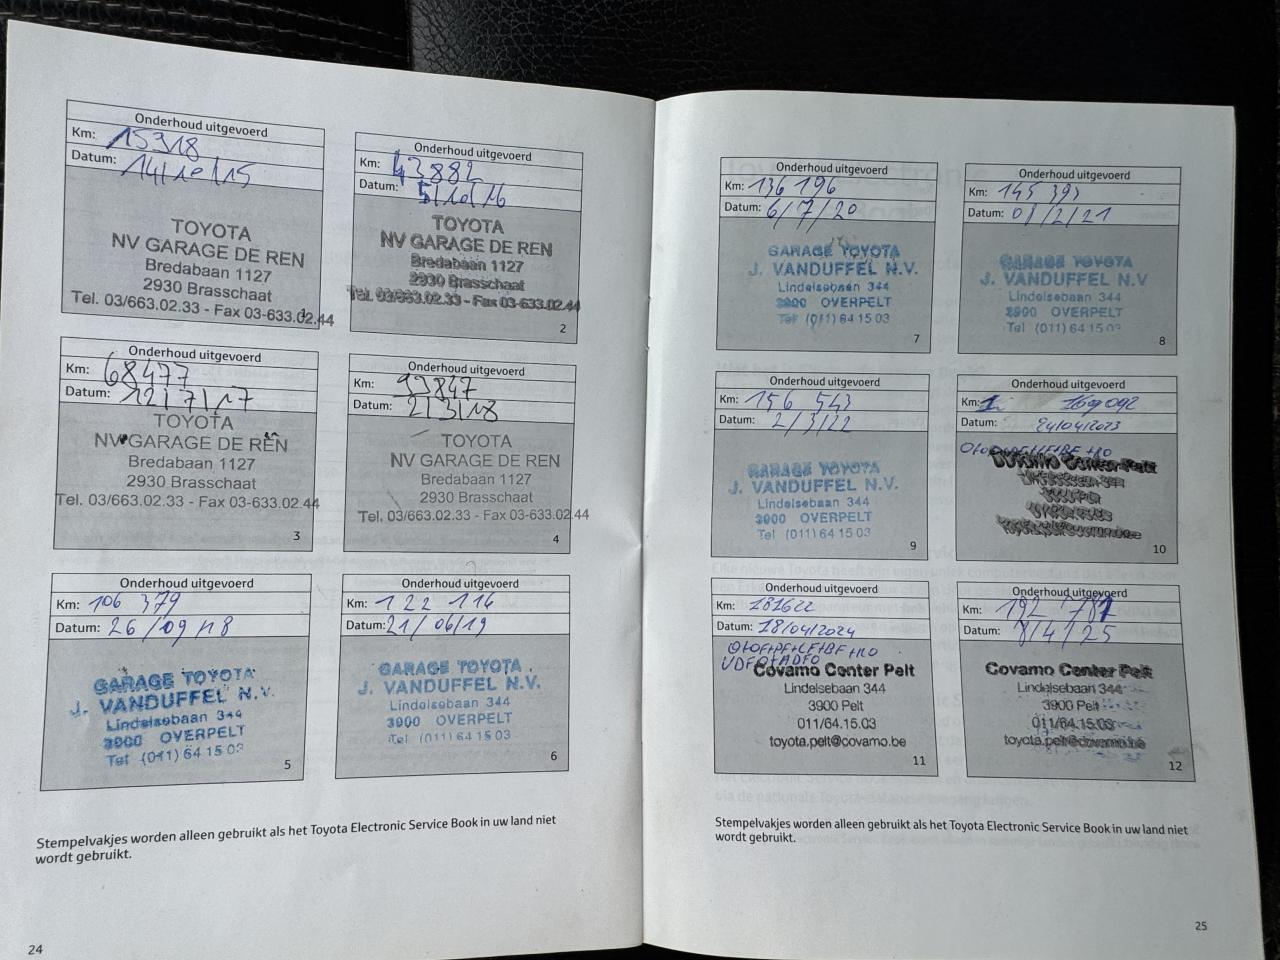 Onderhoud uitgevoerd
Km: 15318
Datum: 14/10/15
TOYOTA
NV GARAGE DE REN
Bredabaan 1127
2930 Brasschaat
Tel. 03/663.02.33 - Fax 03-633.02.44
1
Onderhoud uitgevoerd
Km: 43882
Datum: 5/10/16
TOYOTA
NV GARAGE DE REN
Bredabaan 1127
2930 Brasschaat
Tel. 03/663.02.33 - Fax 03-633.02.44
2
Onderhoud uitgevoerd
Km: 68477
Datum: 12/7/17
TOYOTA
NV GARAGE DE REN
Bredabaan 1127
2930 Brasschaat
Tel. 03/663.02.33 - Fax 03-633.02.44
3
Onderhoud uitgevoerd
Km: 93847
Datum: 2/3/18
TOYOTA
NV GARAGE DE REN
Bredabaan 1127
2930 Brasschaat
Tel. 03/663.02.33 - Fax 03-633.02.44
4
Onderhoud uitgevoerd
Km: 106 379
Datum: 26/09/18
GARAGE TOYOTA
J. VANDUFFEL N.V.
Lindelsebaan 344
3900 OVERPELT
Tel (011) 64 15 03
5
Onderhoud uitgevoerd
Km: 122 116
Datum: 21/06/19
GARAGE TOYOTA
J. VANDUFFEL N.V.
Lindelsebaan 344
3900 OVERPELT
Tel (011) 64 15 03
6
Stempelvakjes worden alleen gebruikt als het Toyota Electronic Service Book in uw land niet
wordt gebruikt.
24
Onderhoud uitgevoerd
Km: 136 196
Datum: 6/7/20
GARAGE TOYOTA
J. VANDUFFEL N.V.
Lindelsebaan 344
3900 OVERPELT
Tel (011) 64 15 03
7
Onderhoud uitgevoerd
Km: 145 393
Datum: 01/2/21
GARAGE TOYOTA
J. VANDUFFEL N.V
Lindelsebaan 344
3900 OVERPELT
Tel (011) 64 15 03
8
Onderhoud uitgevoerd
Km: 156 543
Datum: 2/3/22
GARAGE TOYOTA
J. VANDUFFEL N.V.
Lindelsebaan 344
3900 OVERPELT
Tel (011) 64 15 03
9
Onderhoud uitgevoerd
Km: 169092
Datum: 24/04/2023
Covamo Center Pelt
10
Onderhoud uitgevoerd
Km: 181622
Datum: 18/04/2024
O+OF+PF+LF+BF+RO
Covamo Center Pelt
Lindelsebaan 344
3900 Pelt
011/64.15.03
toyota.pelt@covamo.be
11
Onderhoud uitgevoerd
Km: 192 781
Datum: 8/4/25
Covamo Center Pelt
Lindelsebaan 344
3900 Pelt
011/64.15.03
toyota.pelt@covamo.be
12
Stempelvakjes worden alleen gebruikt als het Toyota Electronic Service Book in uw land niet
wordt gebruikt.
25